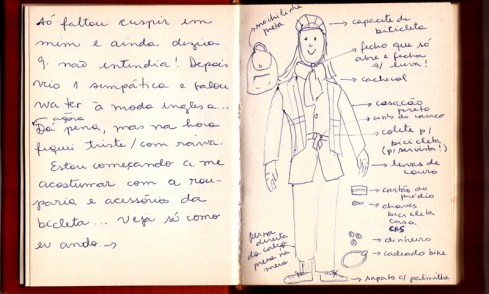 só faltou cuspir em
mim e ainda dizia
q. não entendia! Depois
veio 1 simpática e falou
wa ter à moda inglesa...
agora
Dá pena, mas na hora
fiquei triste/com raiva.
Estou começando a me
acostumar com a rou-
paria e acessório da
bicleta... veja só como
eu ando →
mochilinha
preta
capacete de
bicicleta
fecho que só
abre e fecha
s/ luva!
cachecol
casacão
preto
cinto do casaco
colete p/
bicicleta
(p/ ser vista!)
luvas de
couro
cartão do
prédio
chaves
bicicleta
casa
CBS
dinheiro
cadeado bike
sapato c/ palmilha
perna
direita
da calça
presa na
meia